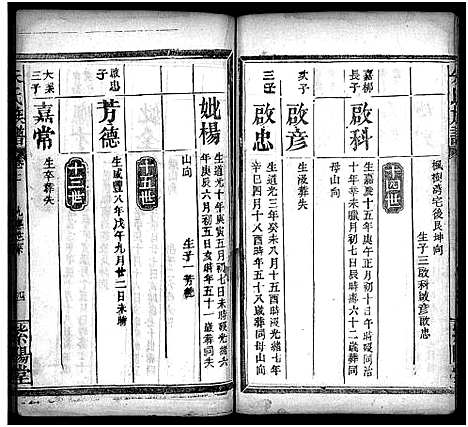 楓樹灣宅後艮坤向
生子三啟科啟彥啟忠
十四世
嘉柳
長子
啟科
生嘉慶十五年庚午正月初十日未時歿光緒同治
十年辛未臘月初七日辰時歲六十二歲葬同
母山向
次子
啟彥
生道光三年癸未八月十五日亥時
三子
啟忠
辛巳四月十八酉時年五十八歲葬同母山向
妣楊
生道光十年庚寅五月初七日未時歿光緒六
年庚辰六月初五日亥時年五十一歲葬同夫
山向
生子一芳德
十五世
啟忠
子
芳德
生咸豐八年戊午九月廿二日未時
十三世
大
三子
嘉常
生卒葬失
氏族譜
四
紫陽堂